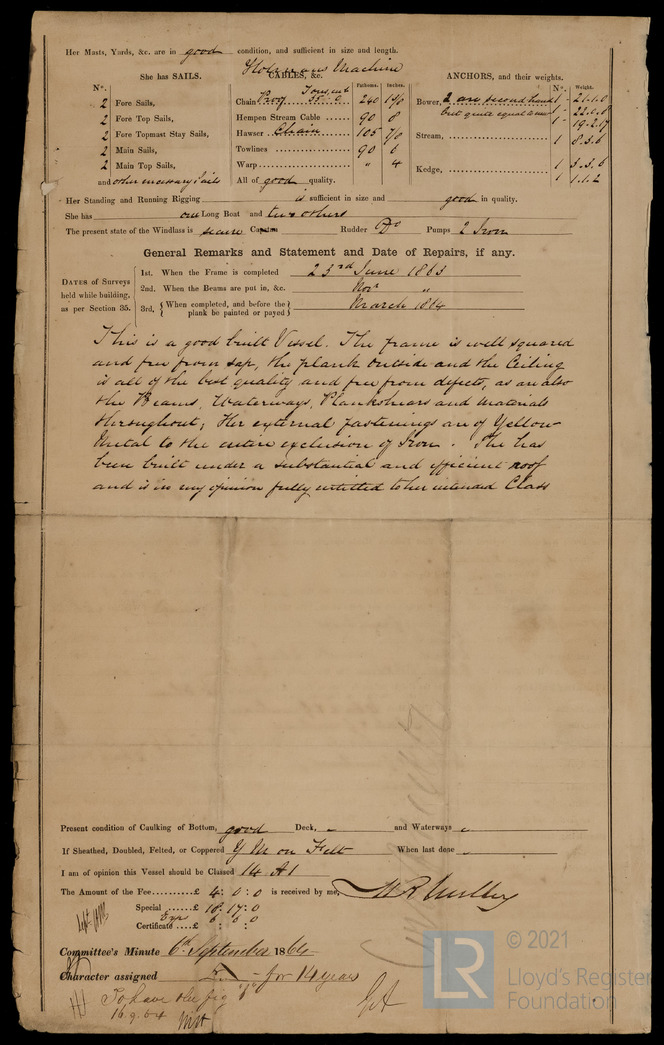 Her Masts, Yards, &c. are in good condition, and sufficient in size and length.
Machine
She has SAILS. CABLES, &c. ANCHORS, and their weights.
N°. Fathoms. Inches. N°. Weight.
2 Fore Sails, Chain 240 Bower, 2 are second hand 1 - 21.1.0
2 Fore Top Sails, Hempen Stream Cable 90 8 but quite equal to new 1 - 22.0.8
2 Fore Topmast Stay Sails, Hawser Chain 105 7/8 1 - 19.2.17
2 Main Sails, Towlines 90 6 Stream, 1 8.3.6
2 Main Top Sails, Warp " 4 Kedge, 1 3.3.6
and other necessary Sails All of good quality. 1 1.1.2
Her Standing and Running Rigging is sufficient in size and good in quality.
She has one Long Boat and two others
The present state of the Windlass is secure Capstan Rudder Do Pumps 2 Iron
General Remarks and Statement and Date of Repairs, if any.
DATES of Surveys held while building, as per Section 35.
1st. When the Frame is completed 23rd June 1863
2nd. When the Beams are put in, &c. Novr "
3rd, { When completed, and before the plank be painted or payed } March 1864
This is a good built Vessel. The frame is well squared
and free from sap, the plank outside and the Ceiling
is all of the best quality and free from defects, as are also
the Beams, Waterways, Planksheers and materials
throughout; Her external fastenings are of Yellow
Metal to the entire exclusion of Iron. She has
been built under a substantial and efficient roof
and is in my opinion fully entitled to her intended Class
Present condition of Caulking of Bottom, good Deck, " and Waterways "
If Sheathed, Doubled, Felted, or Coppered Y M on Felt When last done "
I am of opinion this Vessel should be Classed 14 A1
The Amount of the Fee £ 4 : 0 : 0 is received by me,
Special £ 18 : 17 : 0
Certificate £ : :
Committee's Minute 6th September 1864
Character assigned for 14 years
To have the fig "1"
16.9.64
© 2021
LR
Lloyd's Register
Foundation